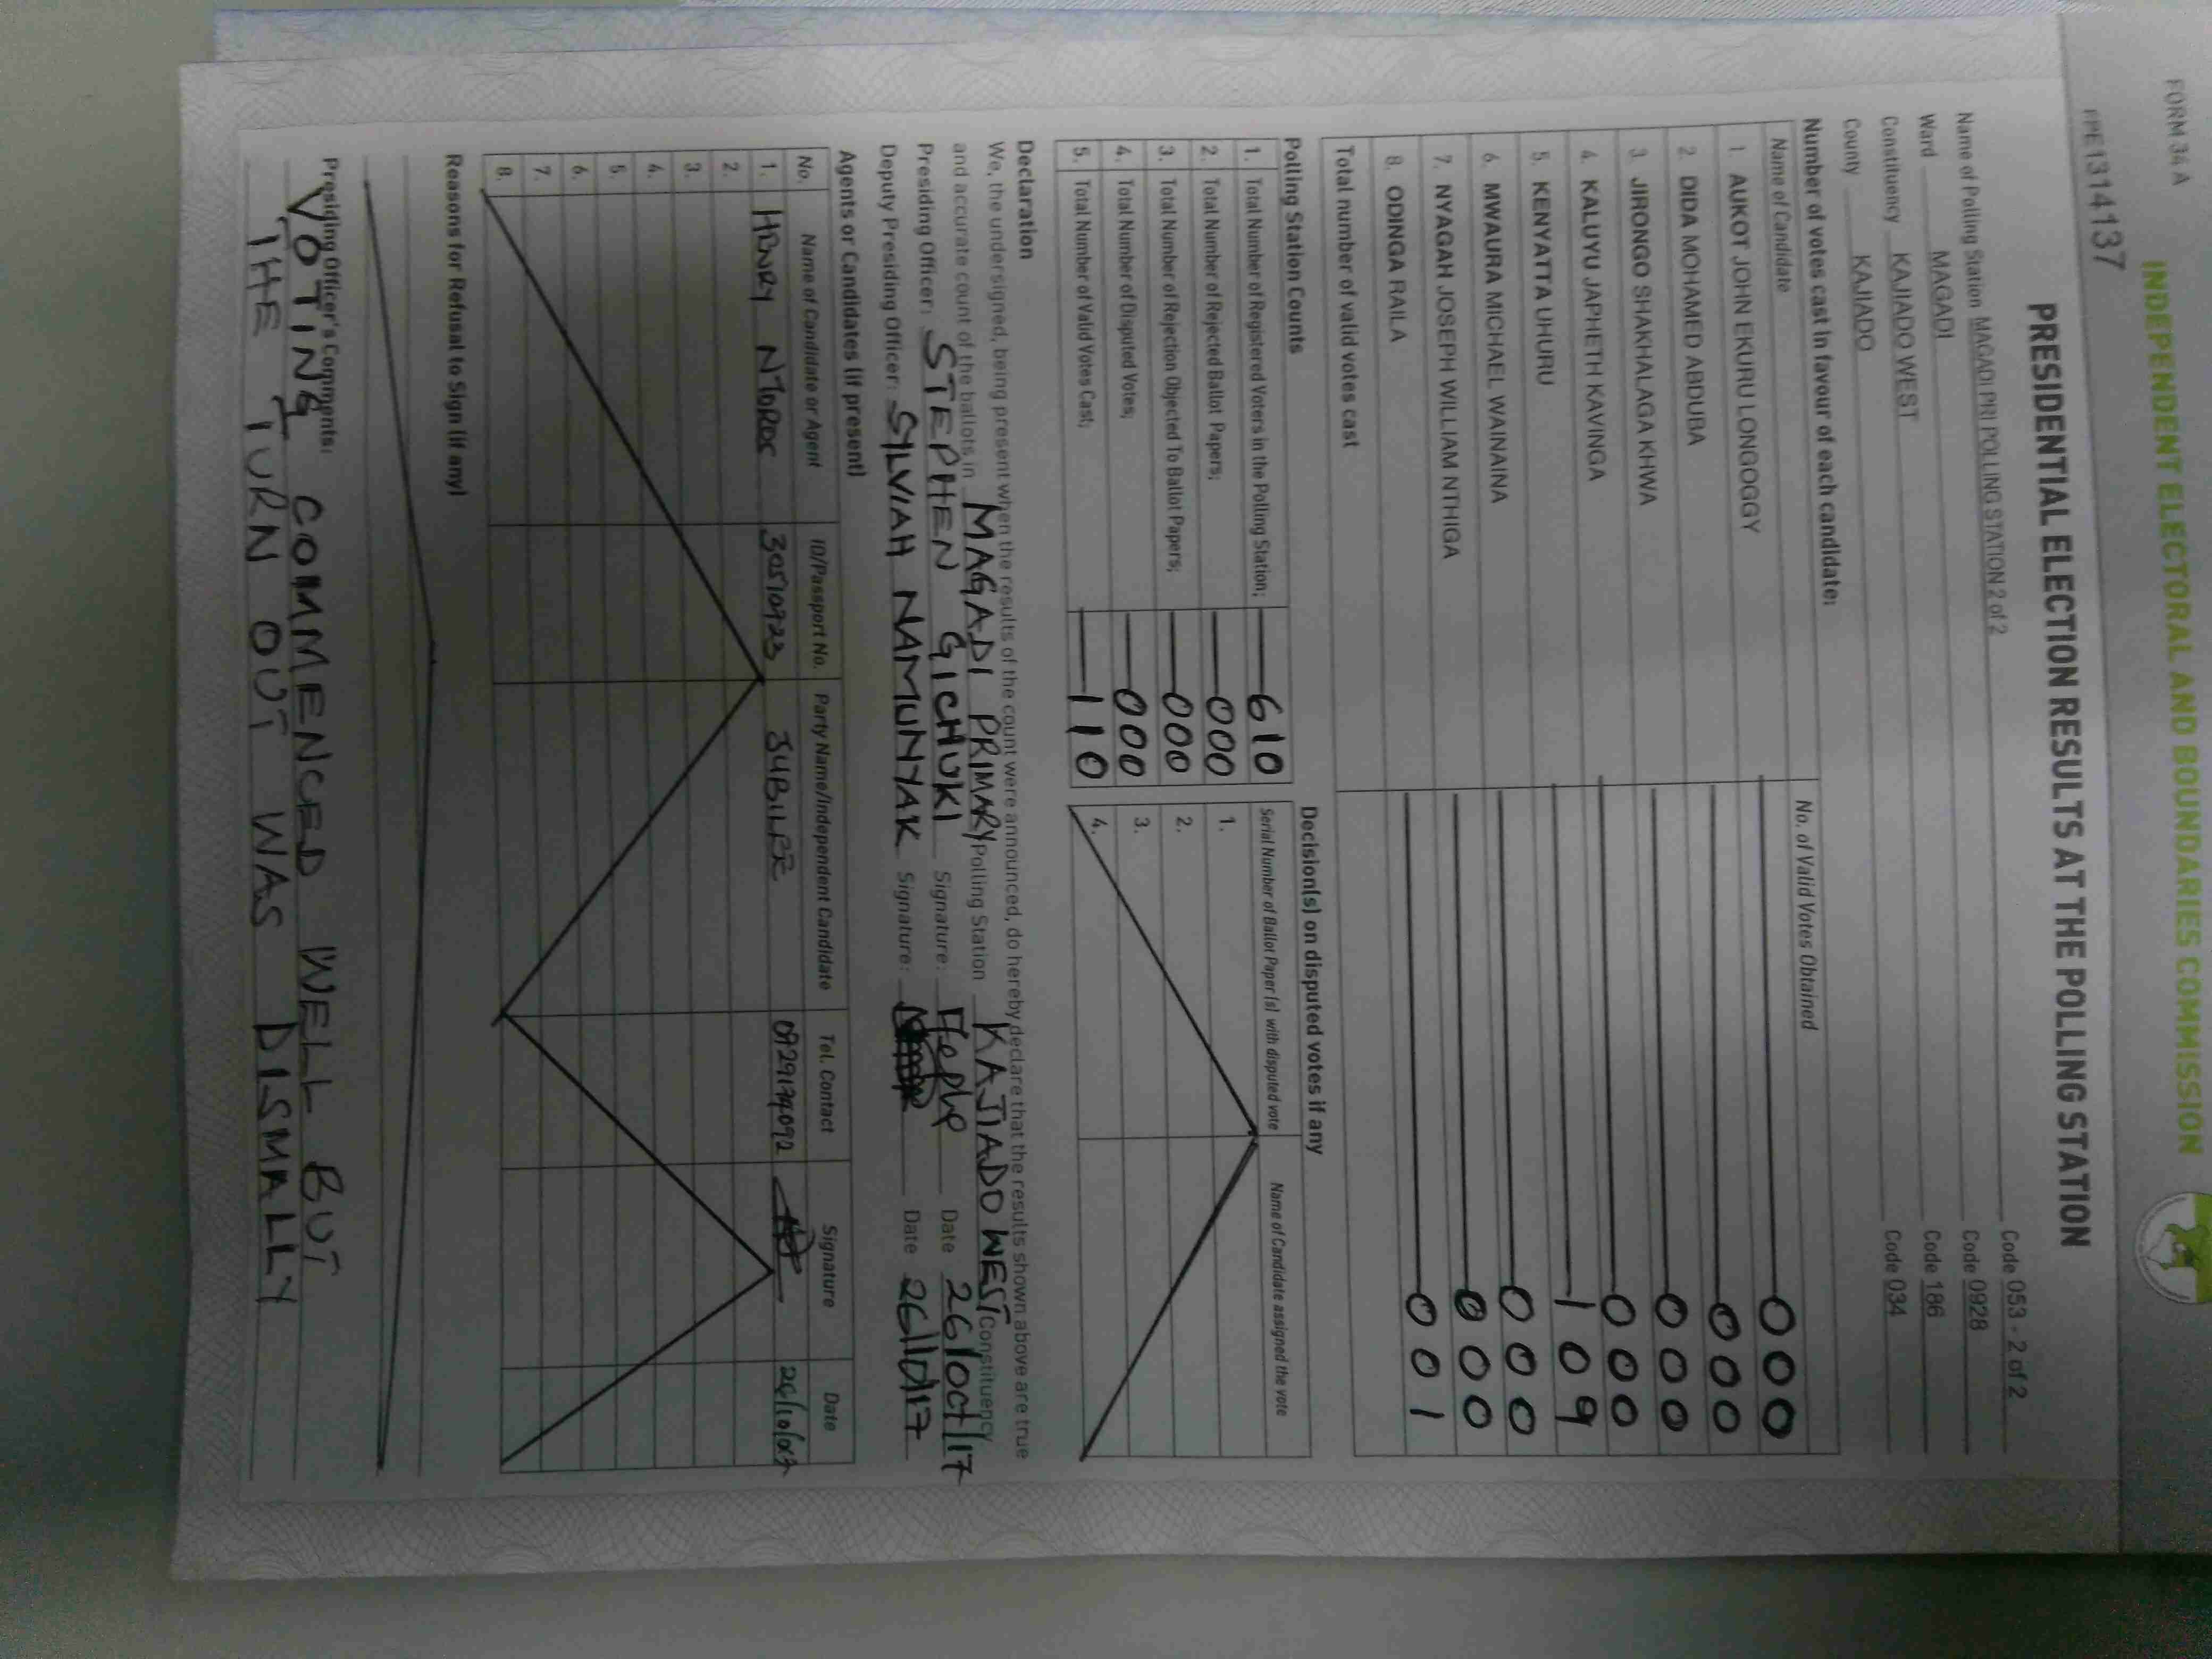 FORM 34 A
INDEPENDENT ELECTORAL AND BOUNDARIES COMMISSION
PRESIDENTIAL ELECTION RESULTS AT THE POLLING STATION
Name of Polling Station MAGADI PRI POLLING STATION 2 of 2 Code 053 - 2 of 2
Ward MAGADI Code 0928
Constituency KAJIADO WEST Code 186
County KAJIADO Code 034
Number of votes cast in favour of each candidate:
Name of Candidate No. of Valid Votes Obtained
1. AUKOT JOHN EKURU LONGOGGY 000
2. DIDA MOHAMED ABDUBA 000
3. JIRONGO SHAKHALAGA KHWA 000
4. KALUYU JAPHETH KAVINGA 000
5. KENYATTA UHURU 109
6. MWAURA MICHAEL WAINAINA 000
7. NYAGAH JOSEPH WILLIAM NTHIGA 000
8. ODINGA RAILA 001
Total number of valid votes cast
Polling Station Counts
1. Total Number of Registered Voters in the Polling Station; 610
2. Total Number of Rejected Ballot Papers; 000
3. Total Number of Rejection Objected To Ballot Papers; 000
4. Total Number of Disputed Votes; 000
5. Total Number of Valid Votes Cast; 110
Decision(s) on disputed votes if any
Serial Number of Ballot Paper (s) with disputed vote Name of Candidate assigned the vote
1.
2.
3.
4.
Declaration
We, the undersigned, being present when the results of the count were announced, do hereby declare that the results shown above are true
and accurate count of the ballots in MAGADI PRIMARY Polling Station KAJIADO WEST Constituency
Presiding Officer: STEPHEN GICHUKI Signature: Date 26/OCT/17
Deputy Presiding Officer: SYLVIAH NAMUNYAK Signature: Date 26/10/17
Agents or Candidates (if present)
No. Name of Candidate or Agent ID/Passport No. Party Name/Independent Candidate Tel. Contact Signature Date
1. HENRY 30510923 JUBILEE
2.
3.
4.
5.
6.
7.
8.
Reasons for Refusal to Sign (if any)
Presiding Officer's Comments:
VOTING COMMENCED WELL BUT
THE TURN OUT WAS DISMALLY